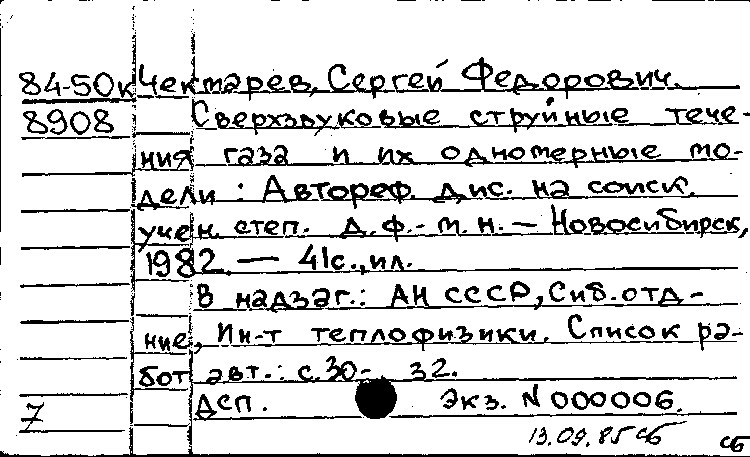 84-50к Чекмарев, Сергей Федорович.
8908 Сверхзвуковые струйные тече-
ния газа и их одномерные мо-
дели : Автореф. дис. на соиск.
учен. степ. д.ф.-м.н. — Новосибирск,
1982. — 41с., ил.
В надзаг.: АН СССР, Сиб. отд-
ние, Ин-т теплофизики. Список ра-
бот авт.: с.30- 32.
7 ДСП. Экз. N 000006.
13.09.85 сб сб